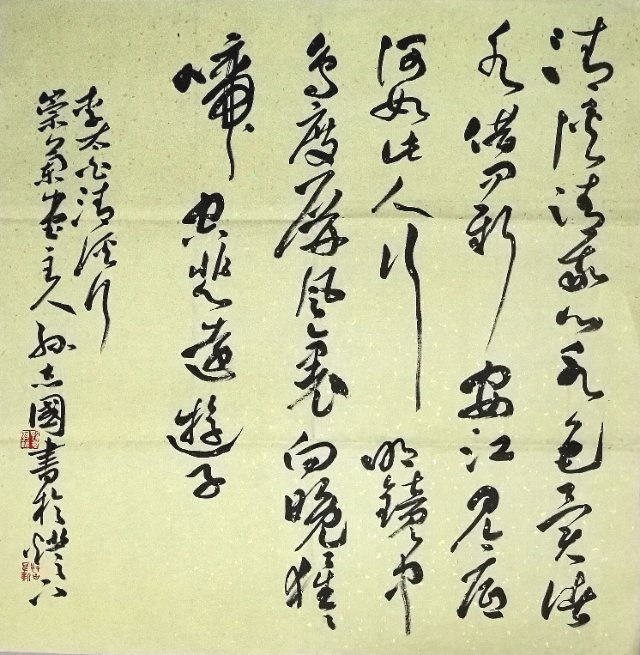 清溪清我心水色異諸
水借問新安江見底
何如此人行明鏡中
鳥度屏風裏向晚猩〻
啼空悲遠遊子
李太白清溪行
主人孫志國書於